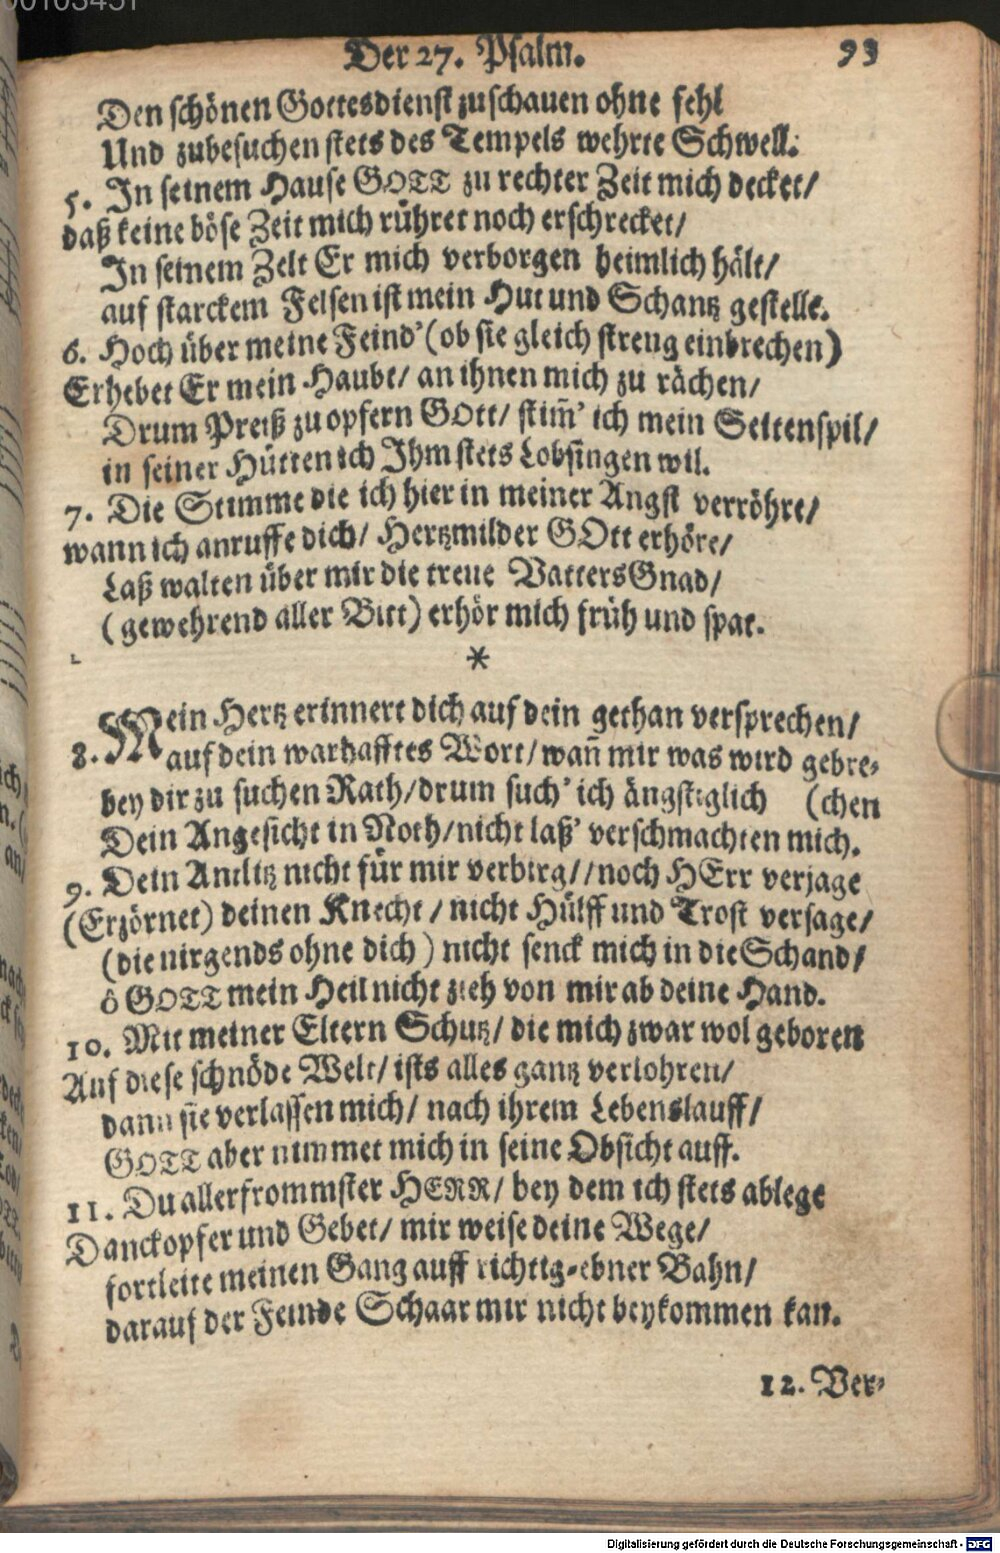 Der 27. Psalm. 93
Den schönen Gottesdienst zuschauen ohne fehl
Und zubesuchen stets des Tempels wehrte Schwell.
5. In seinem Hause GOTT zu rechter Zeit mich decket/
daß keine böse Zeit mich rühret noch erschrecket/
In seinem Zelt Er mich verborgen heimlich hält/
auf starckem Felsen ist mein Hut und Schantz gestellt.
6. Hoch über meine Feind' (ob sie gleich streng einbrechen)
Erhebet Er mein Haubt/ an ihnen mich zu rächen/
Drum Preiß zu opfern GOtt/ stim̃' ich mein Seitenspil/
in seiner Hütten ich Ihm stets Lobsingen wil.
7. Die Stimme die ich hier in meiner Angst verröhre/
wann ich anruffe dich/ Hertzmilder GOtt erhöre/
Laß walten über mir die treue VattersGnad/
(gewehrend aller Bitt) erhör mich früh und spat.
*
8. Mein Hertz erinnert dich auf dein gethan versprechen/
auf dein warhafftes Wort/ wañ mir was wird gebre-
bey dir zu suchen Rath/ drum such' ich ängstiglich (chen
Dein Angesicht in Noth/ nicht laß' verschmachten mich.
9. Dein Antlitz nicht für mir verbirg/ noch HErr verjage
(Erzörnet) deinen Knecht/ nicht Hülff und Trost versage/
(die nirgends ohne dich) nicht senck mich in die Schand/
ô GOTT mein Heil nicht zieh von mir ab deine Hand.
10. Mit meiner Eltern Schutz/ die mich zwar wol geboren
Auf diese schnöde Welt/ ists alles gantz verlohren/
dann sie verlassen mich/ nach ihrem Lebenslauff/
GOTT aber nimmet mich in seine Obsicht auff.
11. Du allerfrommster HERR/ bey dem ich stets ablege
Danckopfer und Gebet/ mir weise deine Wege/
fortleite meinen Gang auff richtig-ebner Bahn/
darauf der Feinde Schaar mir nicht beykommen kan.
12. Ver-
Digitalisierung gefördert durch die Deutsche Forschungsgemeinschaft - DFG